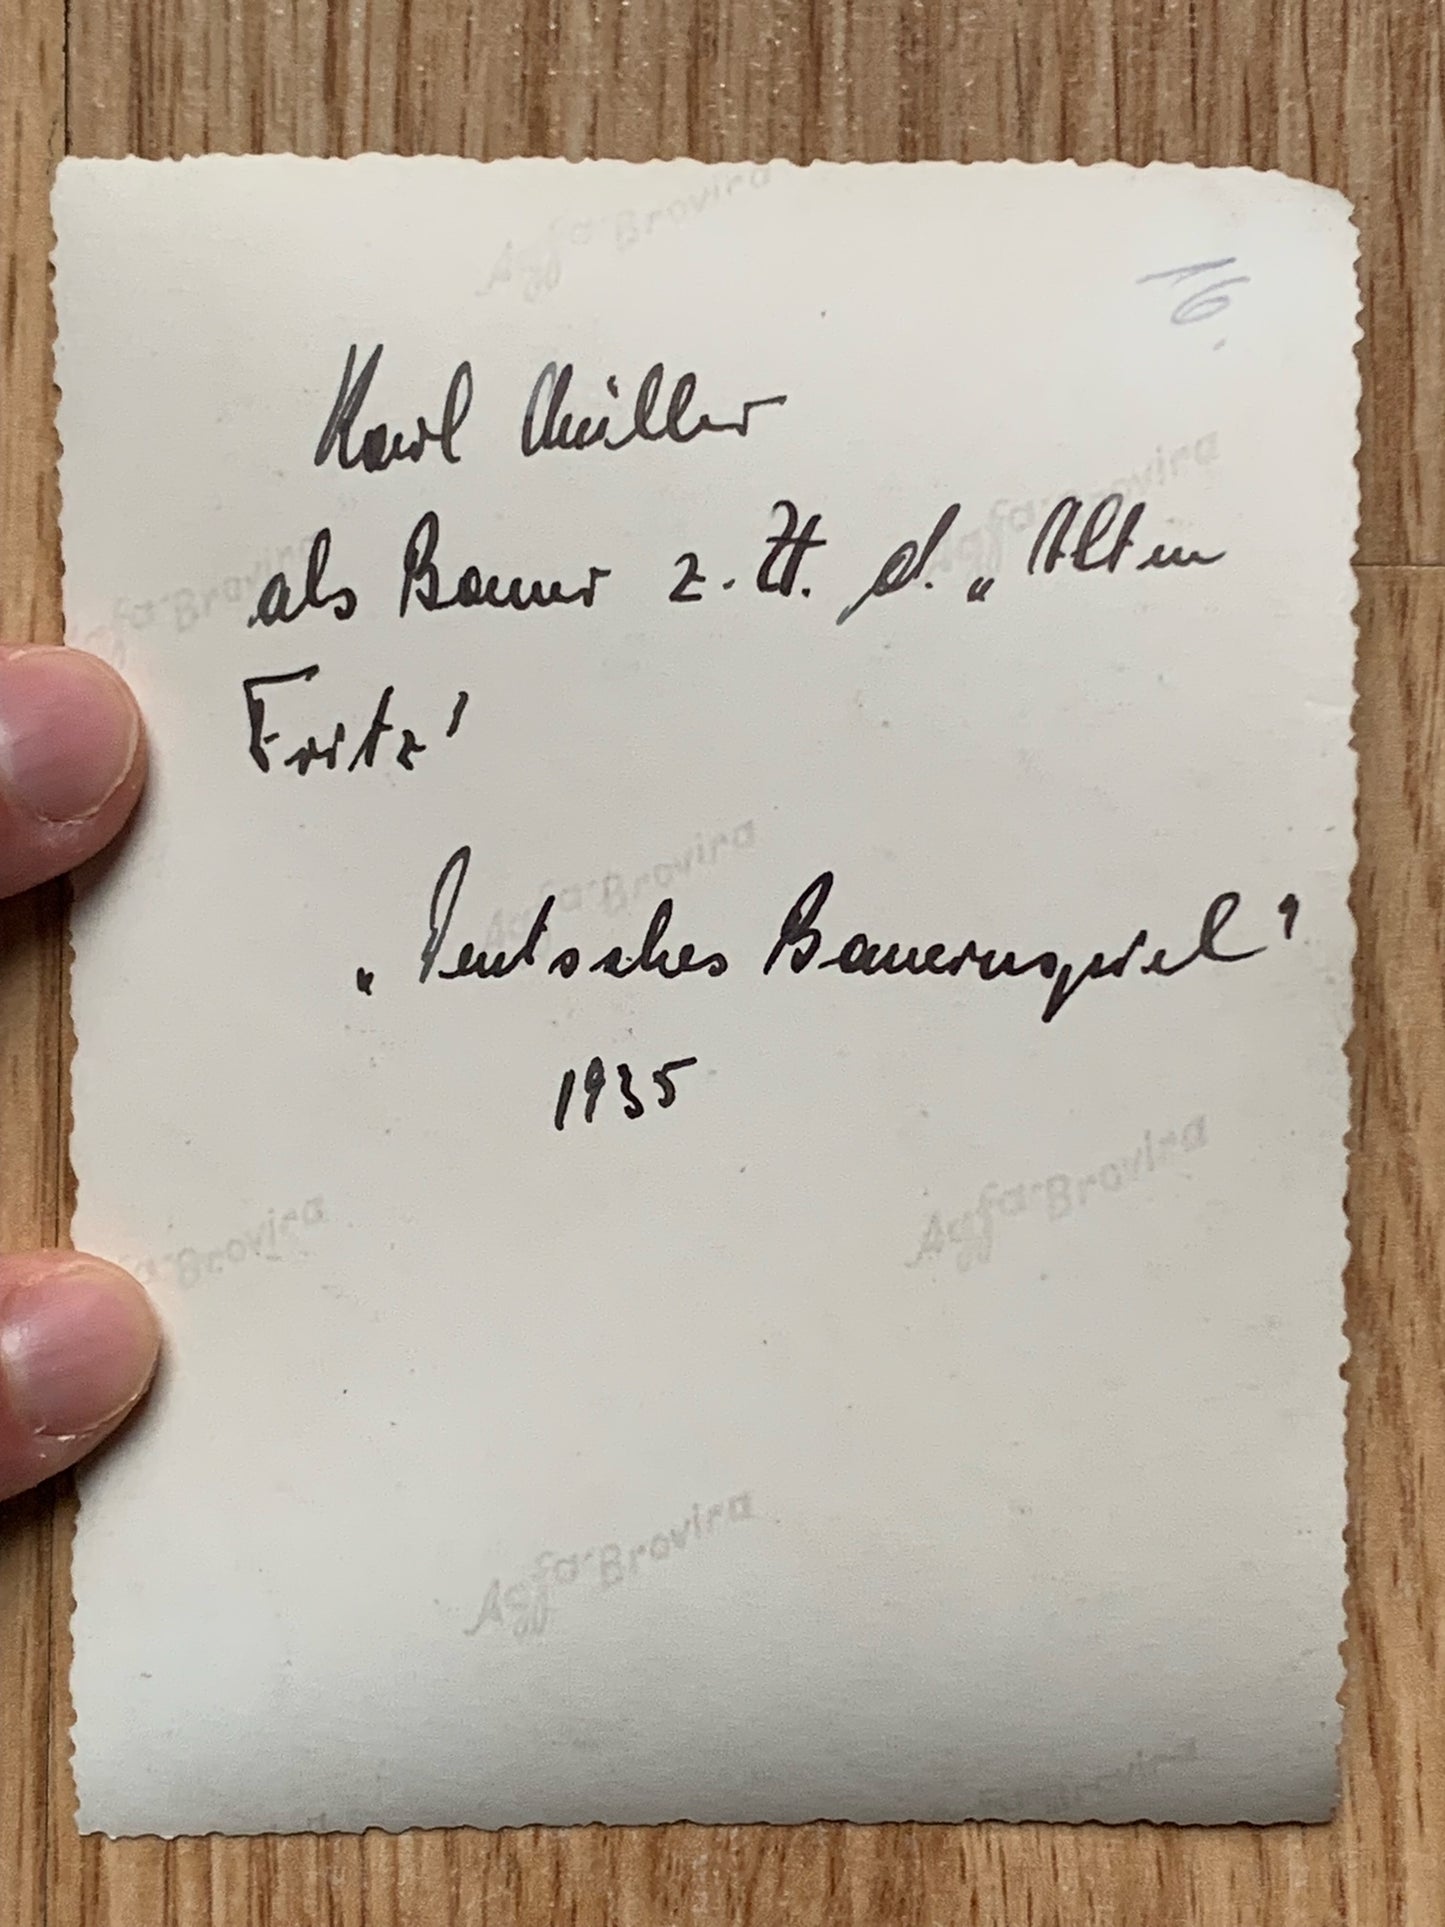 16.
Karl Müller
als Bauer z. Zt. d. „Alten
Fritz'
„Deutsches Bauernspiel"
1935
Agfa-Brovira
Agfa-Brovira
fa-Brovira
Agfa-Brovira
Agfa-Brovira
a-Brovira
Agfa-Brovira
fa-Brovira